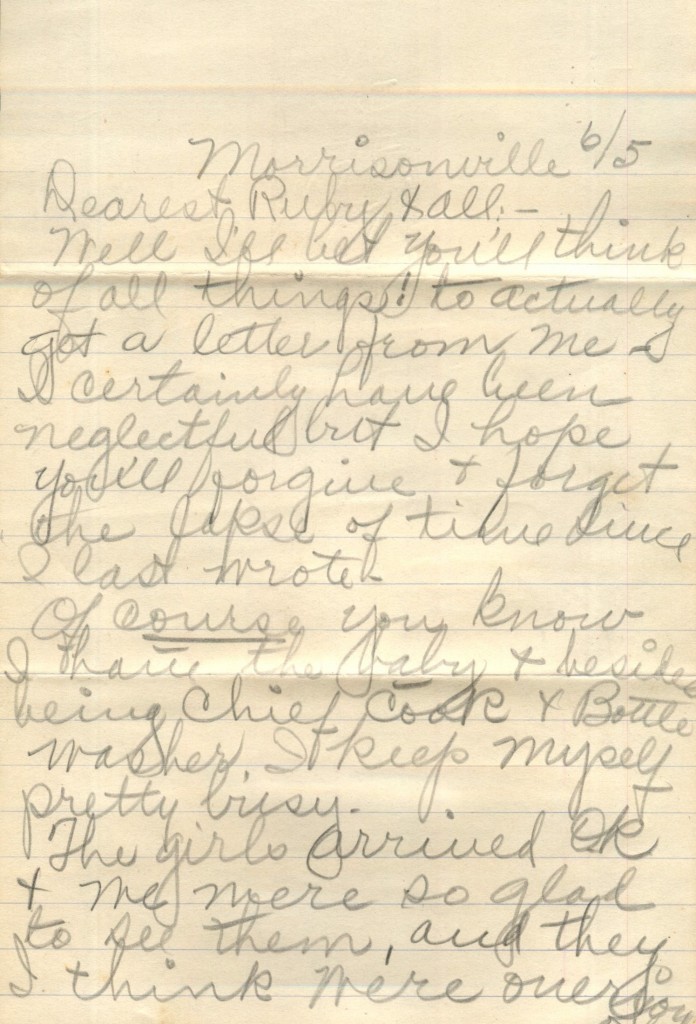 Morrisonville 6/5
Dearest Ruby & all:-
Well I'll bet you'll think
of all things! to actually
get a letter from me -
I certainly have been
neglectful but I hope
you'll forgive & forget
the lapse of time since
I last wrote-
Of course you know
I have the baby & besides
being Chief Cook & Bottle
washer, I keep myself
pretty busy.
The girls arrived OK
& we were so glad
to see them, and they
I think were over